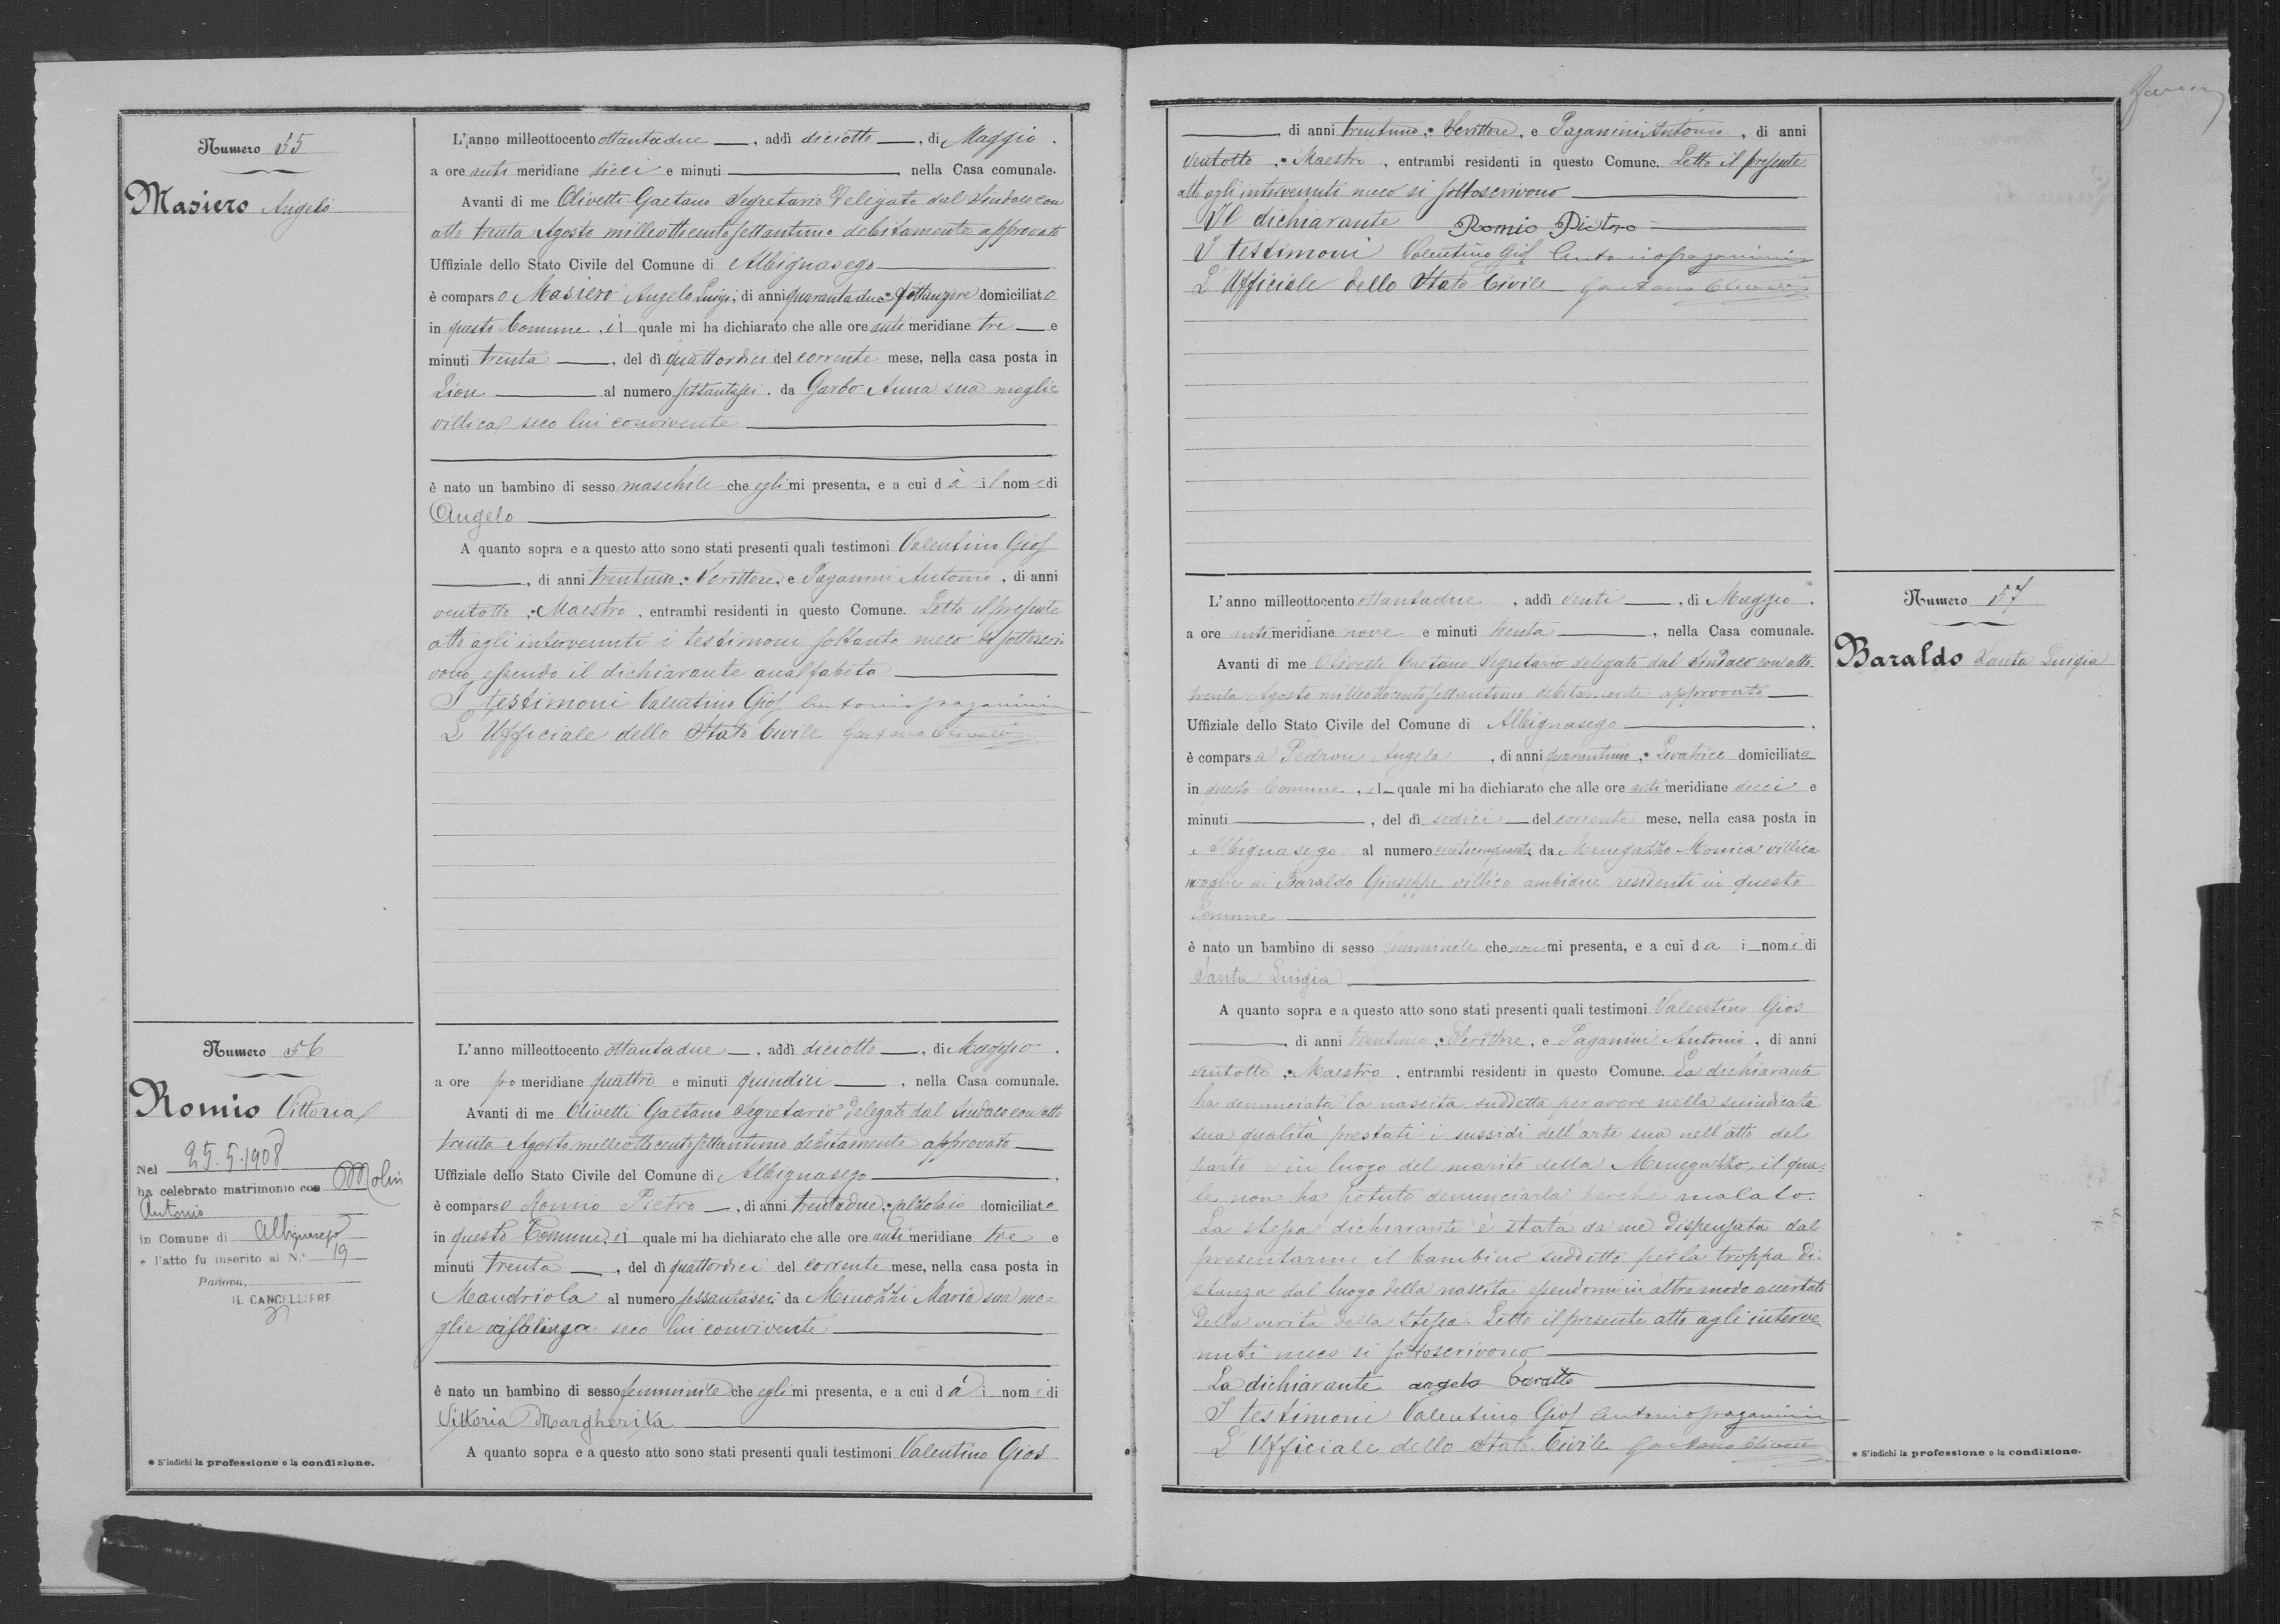 Numero 55
Masiero Angelo
L'anno milleottocento ottantadue, addì diciotto, di Maggio.
a ore anti meridiane dieci e minuti, nella Casa comunale.
Avanti di me Olivetti Gaetano Segretario Delegato dal Sindaco con
atto trenta Agosto milleottocentosettantuno debitamente approvato
Uffiziale dello Stato Civile del Comune di Albignasego
è comparso Masiero Angelo Luigi, di anni quarantadue, fittanziere domiciliato
in questo Comune, il quale mi ha dichiarato che alle ore anti meridiane tre e
minuti trenta, del dì quattordici del corrente mese, nella casa posta in
Lion al numero settantasei, da Garbo Anna sua moglie
villica seco lui convivente
è nato un bambino di sesso maschile che egli mi presenta, e a cui dà il nome di
Angelo
A quanto sopra e a questo atto sono stati presenti quali testimoni Valentino Gios
, di anni trentuno, Scrittore, e Paganini Antonio, di anni
ventotto, Maestro, entrambi residenti in questo Comune. Letto il presente
atto agli intervenuti i testimoni soltanto meco si sottoscri-
vono essendo il dichiarante analfabeta
I testimoni Valentino Gios Antonio paganini
L'Ufficiale dello Stato Civile Gaetano Olivetti
Numero 56
Romio Vittoria
Nel 25.5.1908
ha celebrato matrimonio con Molin
Antonio
in Comune di Albignasego
e l'atto fu inserito al N.° 19
Padova,
IL CANCELLIERE
* S'indichi la professione o la condizione.
L'anno milleottocento ottantadue, addì diciotto, di Maggio.
a ore po meridiane quattro e minuti quindici, nella Casa comunale.
Avanti di me Olivetti Gaetano Segretario Delegato dal Sindaco con atto
trenta Agosto milleottocentosettantuno debitamente approvato
Uffiziale dello Stato Civile del Comune di Albignasego.
è comparso Romio Pietro, di anni trentadue, calzolaio domiciliato
in questo Comune, il quale mi ha dichiarato che alle ore anti meridiane tre e
minuti trenta, del dì quattordici del corrente mese, nella casa posta in
Mandriola al numero sessantasei, da Minozzi Maria sua mo=
glie casalinga seco lui convivente
è nato un bambino di sesso femminile che egli mi presenta, e a cui dà i nomi di
Vittoria Margherita
A quanto sopra e a questo atto sono stati presenti quali testimoni Valentino Gios
, di anni trentuno, Scrittore, e Paganini Antonio, di anni
ventotto, Maestro, entrambi residenti in questo Comune. Letto il presente
atto agli intervenuti meco si sottoscrivono
Il dichiarante Romio Pietro
I testimoni Valentino Gios Antonio paganini
L'Ufficiale dello Stato Civile Gaetano Olivetti
L'anno milleottocento ottantadue, addì venti, di Maggio.
a ore anti meridiane nove e minuti trenta, nella Casa comunale.
Avanti di me Olivetti Gaetano Segretario delegato dal Sindaco con atto
trenta Agosto milleottocentosettantuno debitamente approvato
Uffiziale dello Stato Civile del Comune di Albignasego.
è comparsa Pedron Angela, di anni quarantuno, Levatrice domiciliata
in questo Comune, il quale mi ha dichiarato che alle ore anti meridiane dieci e
minuti, del dì sedici del corrente mese, nella casa posta in
Albignasego al numero centocinquanta da Menegazzo Monica villica
moglie di Baraldo Giuseppe villico ambidue residenti in questo
Comune
è nato un bambino di sesso femminile che non mi presenta, e a cui da i nomi di
Santa Luigia
A quanto sopra e a questo atto sono stati presenti quali testimoni Valentino Gios
, di anni trentuno, Scrittore, e Paganini Antonio, di anni
ventotto, Maestro, entrambi residenti in questo Comune. La dichiarante
ha denunciata la nascita suddetta per avere nella suindicata
sua qualità prestati i sussidi dell'arte sua nell'atto del
parto e in luogo del marito della Menegazzo, il qua=
le non ha potuto denunciarla perchè malato.
La stessa dichiarante è stata da me dispensata dal
presentarmi il bambino suddetto per la troppa di=
stanza dal luogo della nascita essendomi in altro modo accertato
della verità della stessa. Letto il presente atto agli interve
nuti meco si sottoscrivono
La dichiarante angela
I testimoni Valentino Gios Antonio paganini
L'Ufficiale dello Stato Civile Gaetano Olivetti
Numero 57
Baraldo Santa Luigia
* S'indichi la professione o la condizione.